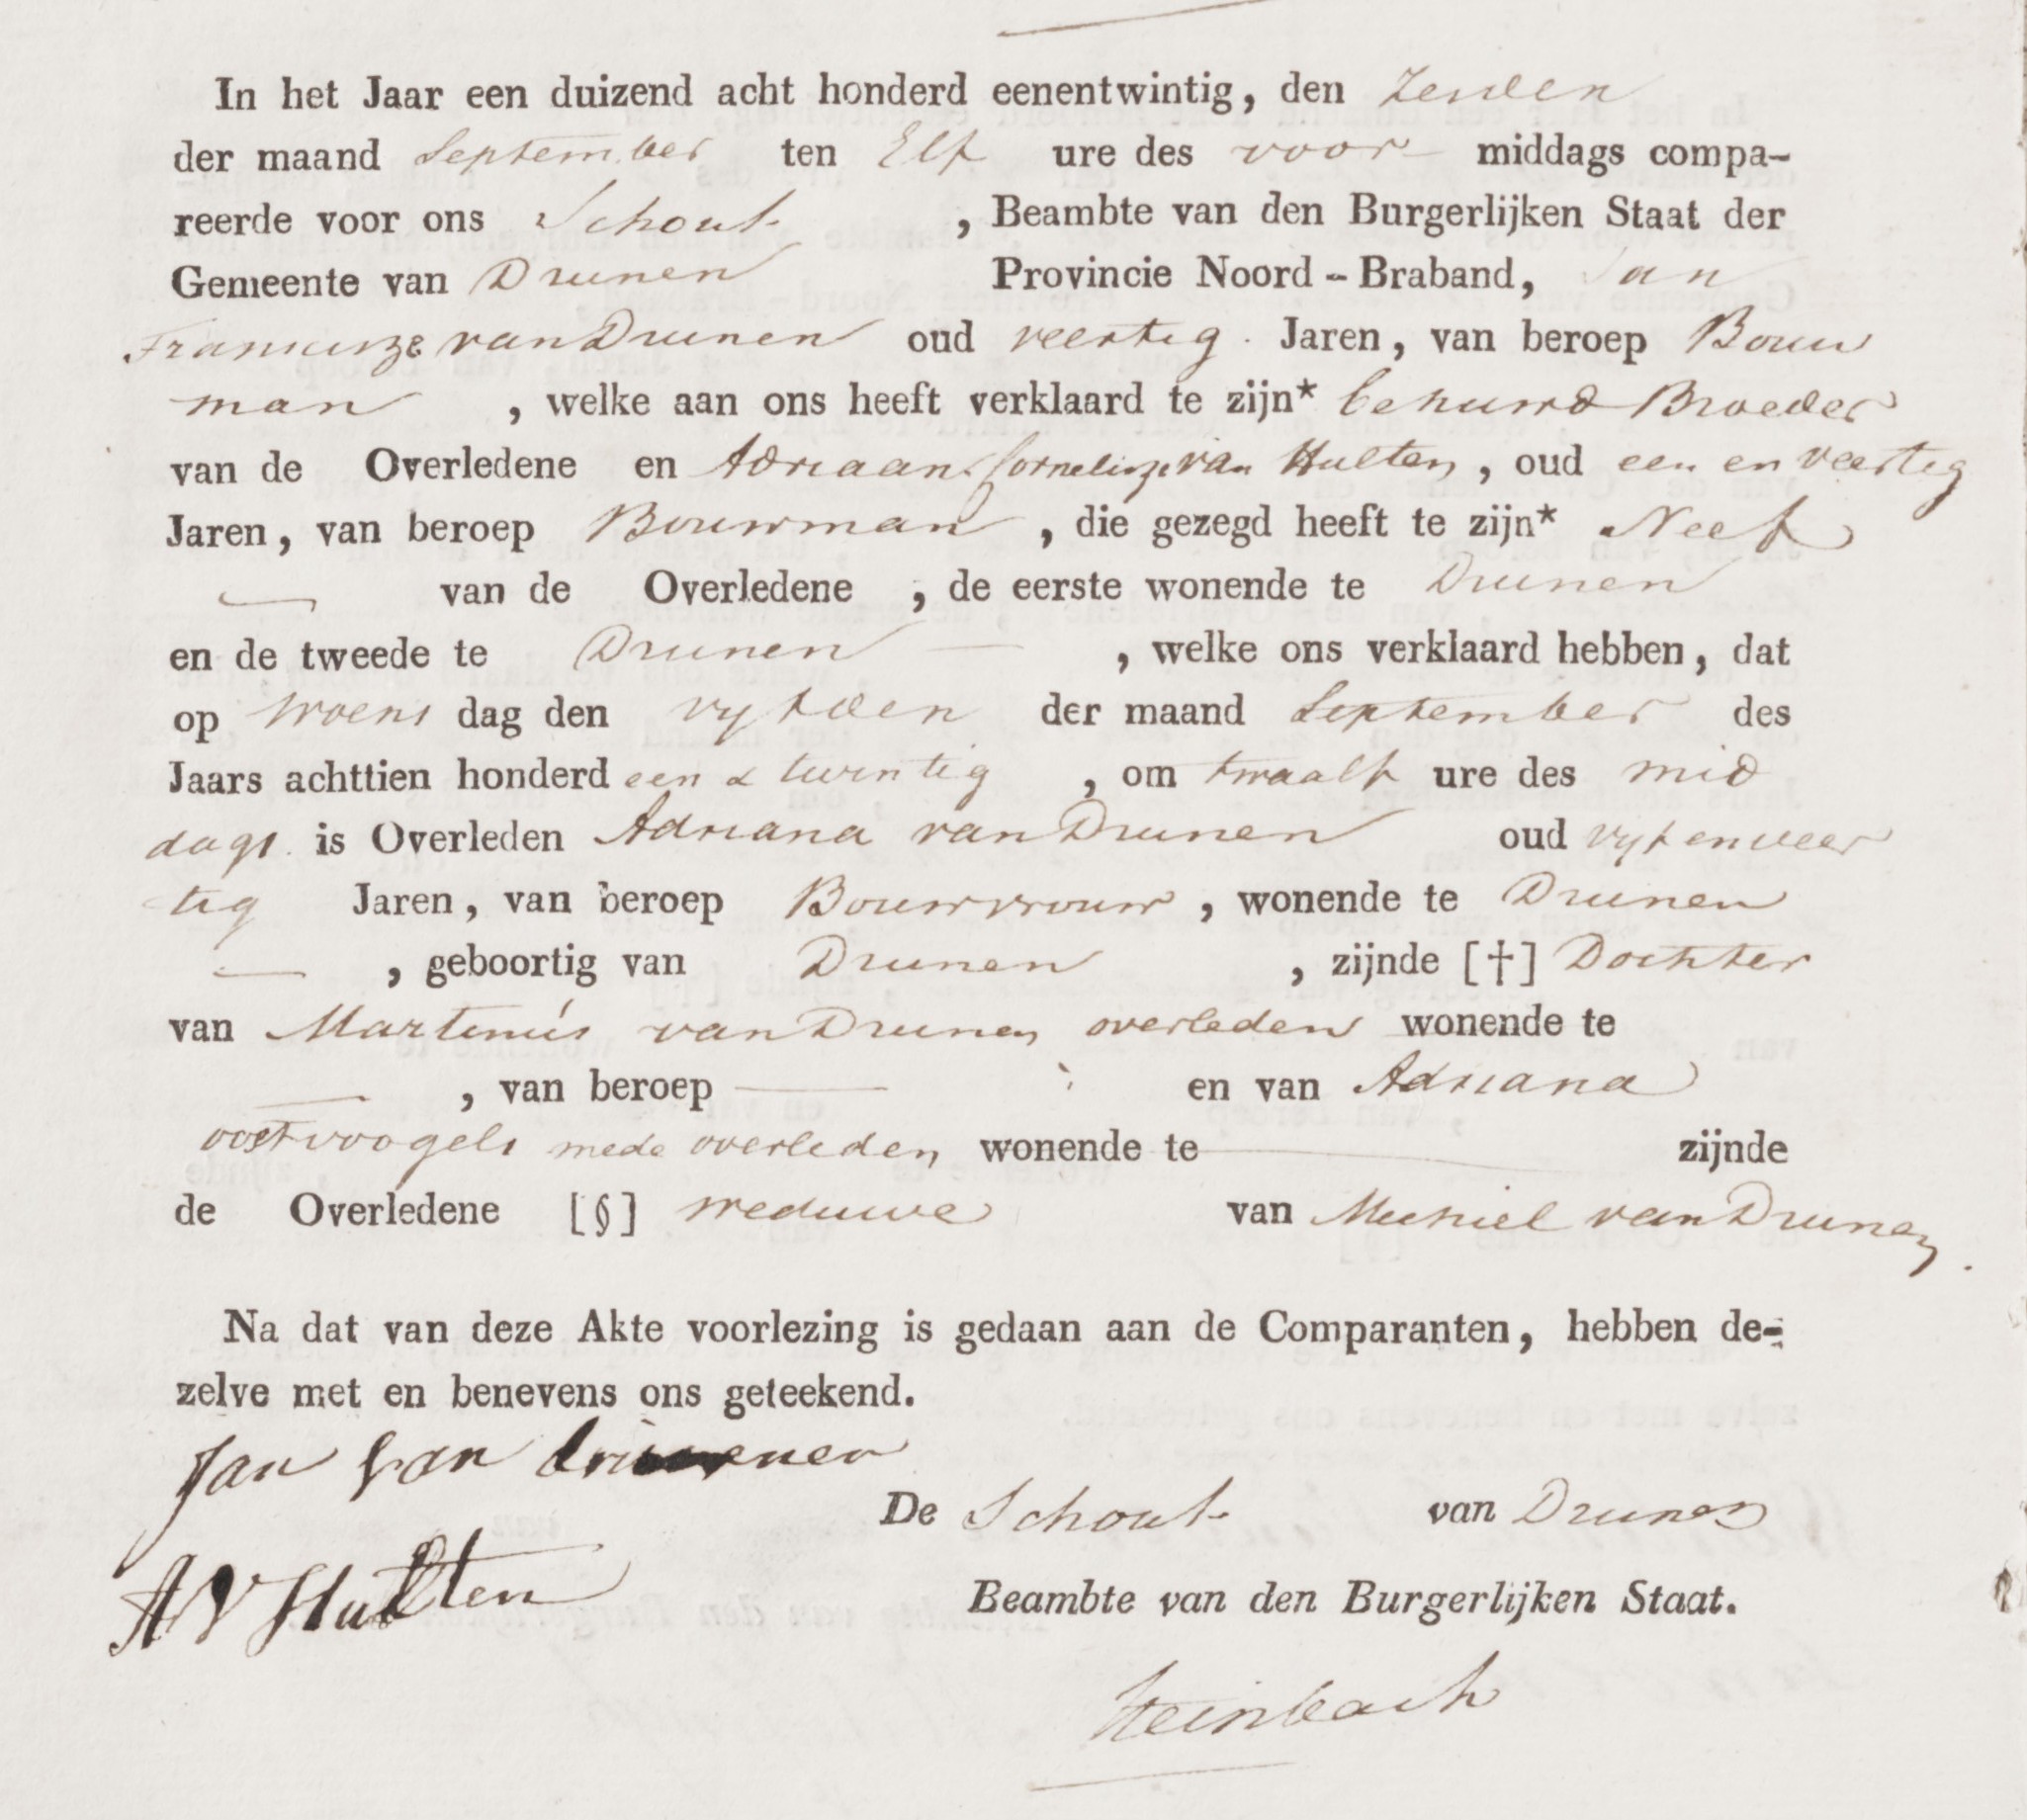 In het Jaar een duizend acht honderd eenentwintig, den Zesden
der maand September ten Elf ure des voor middags compa-
reerde voor ons Schout , Beambte van den Burgerlijken Staat der
Gemeente van Drunen Provincie Noord - Braband, Jan
Francisze van Drunen oud veertig Jaren, van beroep Bouw
man , welke aan ons heeft verklaard te zijn* behuwd Broeder
van de Overledene en Adriaan Cornelisze van Hulten, oud een en veertig
Jaren, van beroep Bouwman , die gezegd heeft te zijn* Neef
— van de Overledene , de eerste wonende te Drunen
en de tweede te Drunen — , welke ons verklaard hebben, dat
op woens dag den vyfden der maand September des
Jaars achttien honderd een & twintig , om twaalf ure des mid
dags is Overleden Adriana van Drunen oud vyf en veer
tig Jaren, van beroep Bouwvrouw , wonende te Drunen
— , geboortig van Drunen , zijnde [†] Dochter
van Martinús van Drunen overleden wonende te
— , van beroep — en van Adriana
oostvoogels mede overleden wonende te — zijnde
de Overledene [§] weduwe van Mechiel van Drunen.
Na dat van deze Akte voorlezing is gedaan aan de Comparanten, hebben de-
zelve met en benevens ons geteekend.
Jan van
De Schout van Drunen
A V Hulten
Beambte van den Burgerlijken Staat.
Steinbach